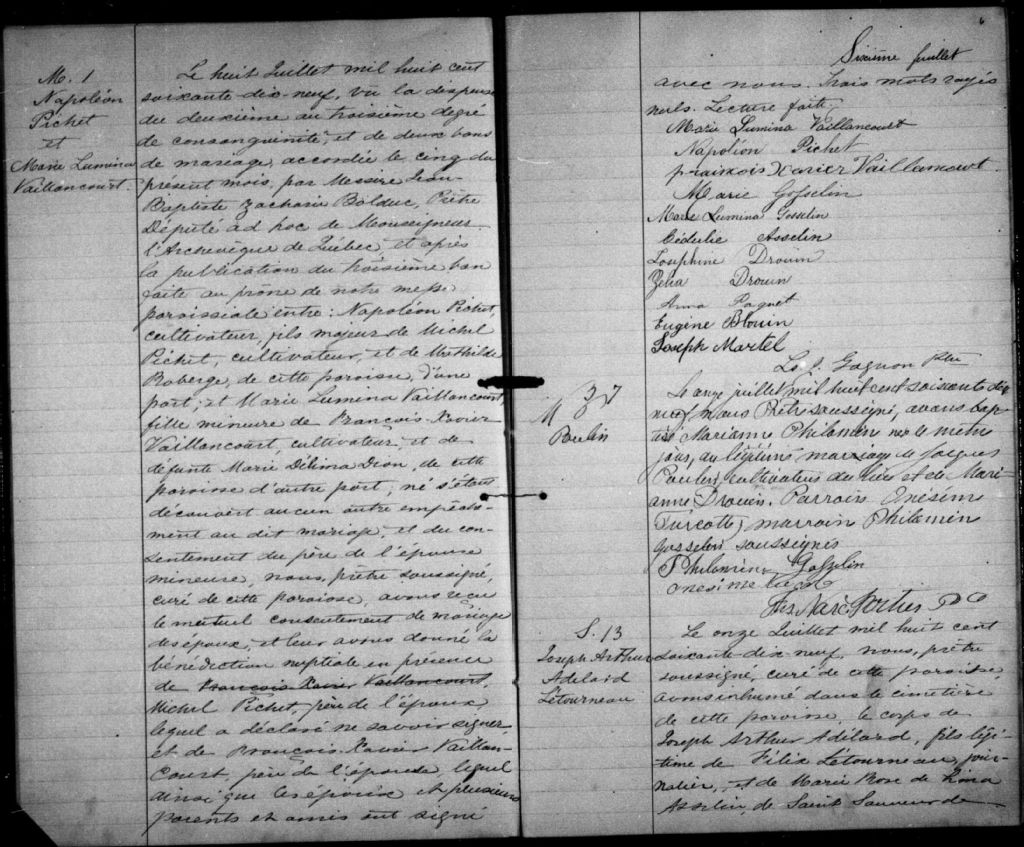 M. 1
Napoléon
Pichet
et
Marie Lumina
Vaillancourt.
Le huit Juillet mil huit cent
soixante-dix-neuf, vu la dispense
du deuxième au troisième degré
de consanguinité, et de deux bans
de mariage, accordée le cinq du
présent mois, par Messire Jean
Baptiste Zacharie Bolduc, Prêtre
Député ad hoc de Monseigneur
l'Archevêque de Québec, et après
la publication du troisième ban
faite au prône de notre messe
paroissiale entre: Napoléon Pichet,
cultivateur, fils majeur de Michel
Pichet, cultivateur, et de Mathilde
Roberge, de cette paroisse, d'une
part; et Marie Lumina Vaillancourt,
fille mineure de François-Xavier
Vaillancourt, cultivateur, et de
défunte Marie Délima Dion, de cette
paroisse d'autre part; ne s'étant
découvert aucun autre empêche-
ment au dit mariage, et du con-
sentement du père de l'épouse
mineure, nous, prêtre soussigné,
curé de cette paroisse, avons reçu
le mutuel consentement de mariage
des époux, et leur avons donné la
bénédiction nuptiale en présence
de François-Xavier Vaillancourt,
Michel Pichet, père de l'époux
lequel a déclaré ne savoir signer,
et de François-Xavier Vaillan-
court, père de l'épouse, lequel
ainsi que les époux et plusieurs
parents et amis ont signé
6
Sixième feuillet
avec nous. Trois mots rayés
nuls. Lecture faite,
Marie Lumina Vaillancourt
Napoléon Pichet
Xavier Vaillancourt
Marie Gosselin
Marie Lumina Gosselin
Cédulie Asselin
Josephine Drouin
Zelia Drouin
Anna Paquet
Eugène Blouin
Joseph Martel
J. Gagnon Ptre
M
Poulin
Le onze juillet mil huit cent soixante dix
neuf nous Prêtre soussigné, avons bap-
tisé Marianne Philomène née le même
jour, du légitime marriage de Jacques
Poulin, cultivateur du lieu et de Mari-
anne Drouin. Parrain Onésime
Turcotte, marraine Philomène
Gosselin soussignés
Philomène Gosselin
onesime
Narc. Fortier
S. 13
Joseph Arthur
Adélard
Létourneau
Le onze Juillet mil huit cent
soixante-dix-neuf, nous, prêtre
soussigné, curé de cette paroisse,
avons inhumé dans le cimetière
de cette paroisse, le corps de
Joseph Arthur Adélard, fils légi-
time de Félix Létourneau, jour-
nalier, et de Marie Rose de Lima
Asselin, de Saint Sauveur de